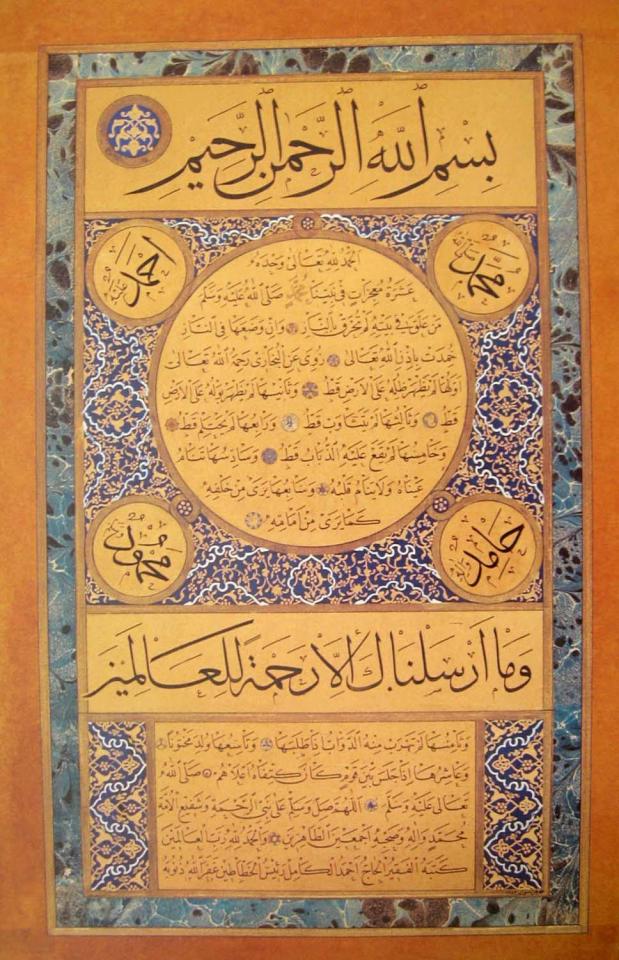 بِسْمِ اللهِ الرَّحْمٰنِ الرَّحِيمِ
مُحَمَّد
اَحْمَد
اَلْحَمْدُ لِلّٰهِ تَعَالٰى وَحْدَهُ
عَشَرَةُ مُعْجِزَاتٍ فِى نَبِيِّنَا مُحَمَّدٍ صَلَّى اللهُ عَلَيْهِ وَسَلَّمَ
مَنْ عَلَّقَ فِى بَيْتِهِ لَمْ تُحْرَقْ بِالنَّارِ وَاِنْ وَضَعَهَا فِى النَّارِ
خَمِدَتْ بِاِذْنِ اللهِ تَعَالٰى رُوِىَ عَنِ الْبُخَارِى رَحِمَهُ اللهُ تَعَالٰى
اَوَّلُهَا لَمْ يَظْهَرْ ظِلُّهُ عَلَى الْاَرْضِ قَطُّ وَثَانِيهَا لَمْ يَظْهَرْ بَوْلُهُ عَلَى الْاَرْضِ
قَطُّ وَثَالِثُهَا لَمْ يَتَثَاوَبْ قَطُّ وَرَابِعُهَا لَمْ يَحْتَلِمْ قَطُّ
وَخَامِسُهَا لَمْ يَقَعْ عَلَيْهِ الذُّبَابُ قَطُّ وَسَادِسُهَا تَنَامُ
عَيْنَاهُ وَلَا يَنَامُ قَلْبُهُ وَسَابِعُهَا يَرٰى مِنْ خَلْفِهِ
كَمَا يَرٰى مِنْ اَمَامِهِ
حَامِد
مَحْمُود
وَمَا اَرْسَلْنَاكَ اِلَّا رَحْمَةً لِلْعَالَمِينَ
وَثَامِنُهَا لَمْ تَهْرُبْ مِنْهُ الدَّوَابُّ اِذَا طَلَبَهَا وَتَاسِعُهَا وُلِدَ مَخْتُونًا
وَعَاشِرُهَا اِذَا جَلَسَ بَيْنَ قَوْمٍ كَانَ كَتِفَاهُ اَعْلَاهُمْ صَلَّى اللهُ
تَعَالٰى عَلَيْهِ وَسَلَّمَ اَللّٰهُمَّ صَلِّ وَسَلِّمْ عَلٰى نَبِىِّ الرَّحْمَةِ وَشَفِيعِ الْاُمَّةِ
مُحَمَّدٍ وَاٰلِهِ وَصَحْبِهِ اَجْمَعِينَ الطَّاهِرِينَ وَالْحَمْدُ لِلّٰهِ رَبِّ الْعَالَمِينَ
كَتَبَهُ الْفَقِيرُ الْحَاجُّ اَحْمَدُ الْكَامِلُ رَئِيسُ الْخَطَّاطِينَ غَفَرَ اللهُ ذُنُوبَهُ